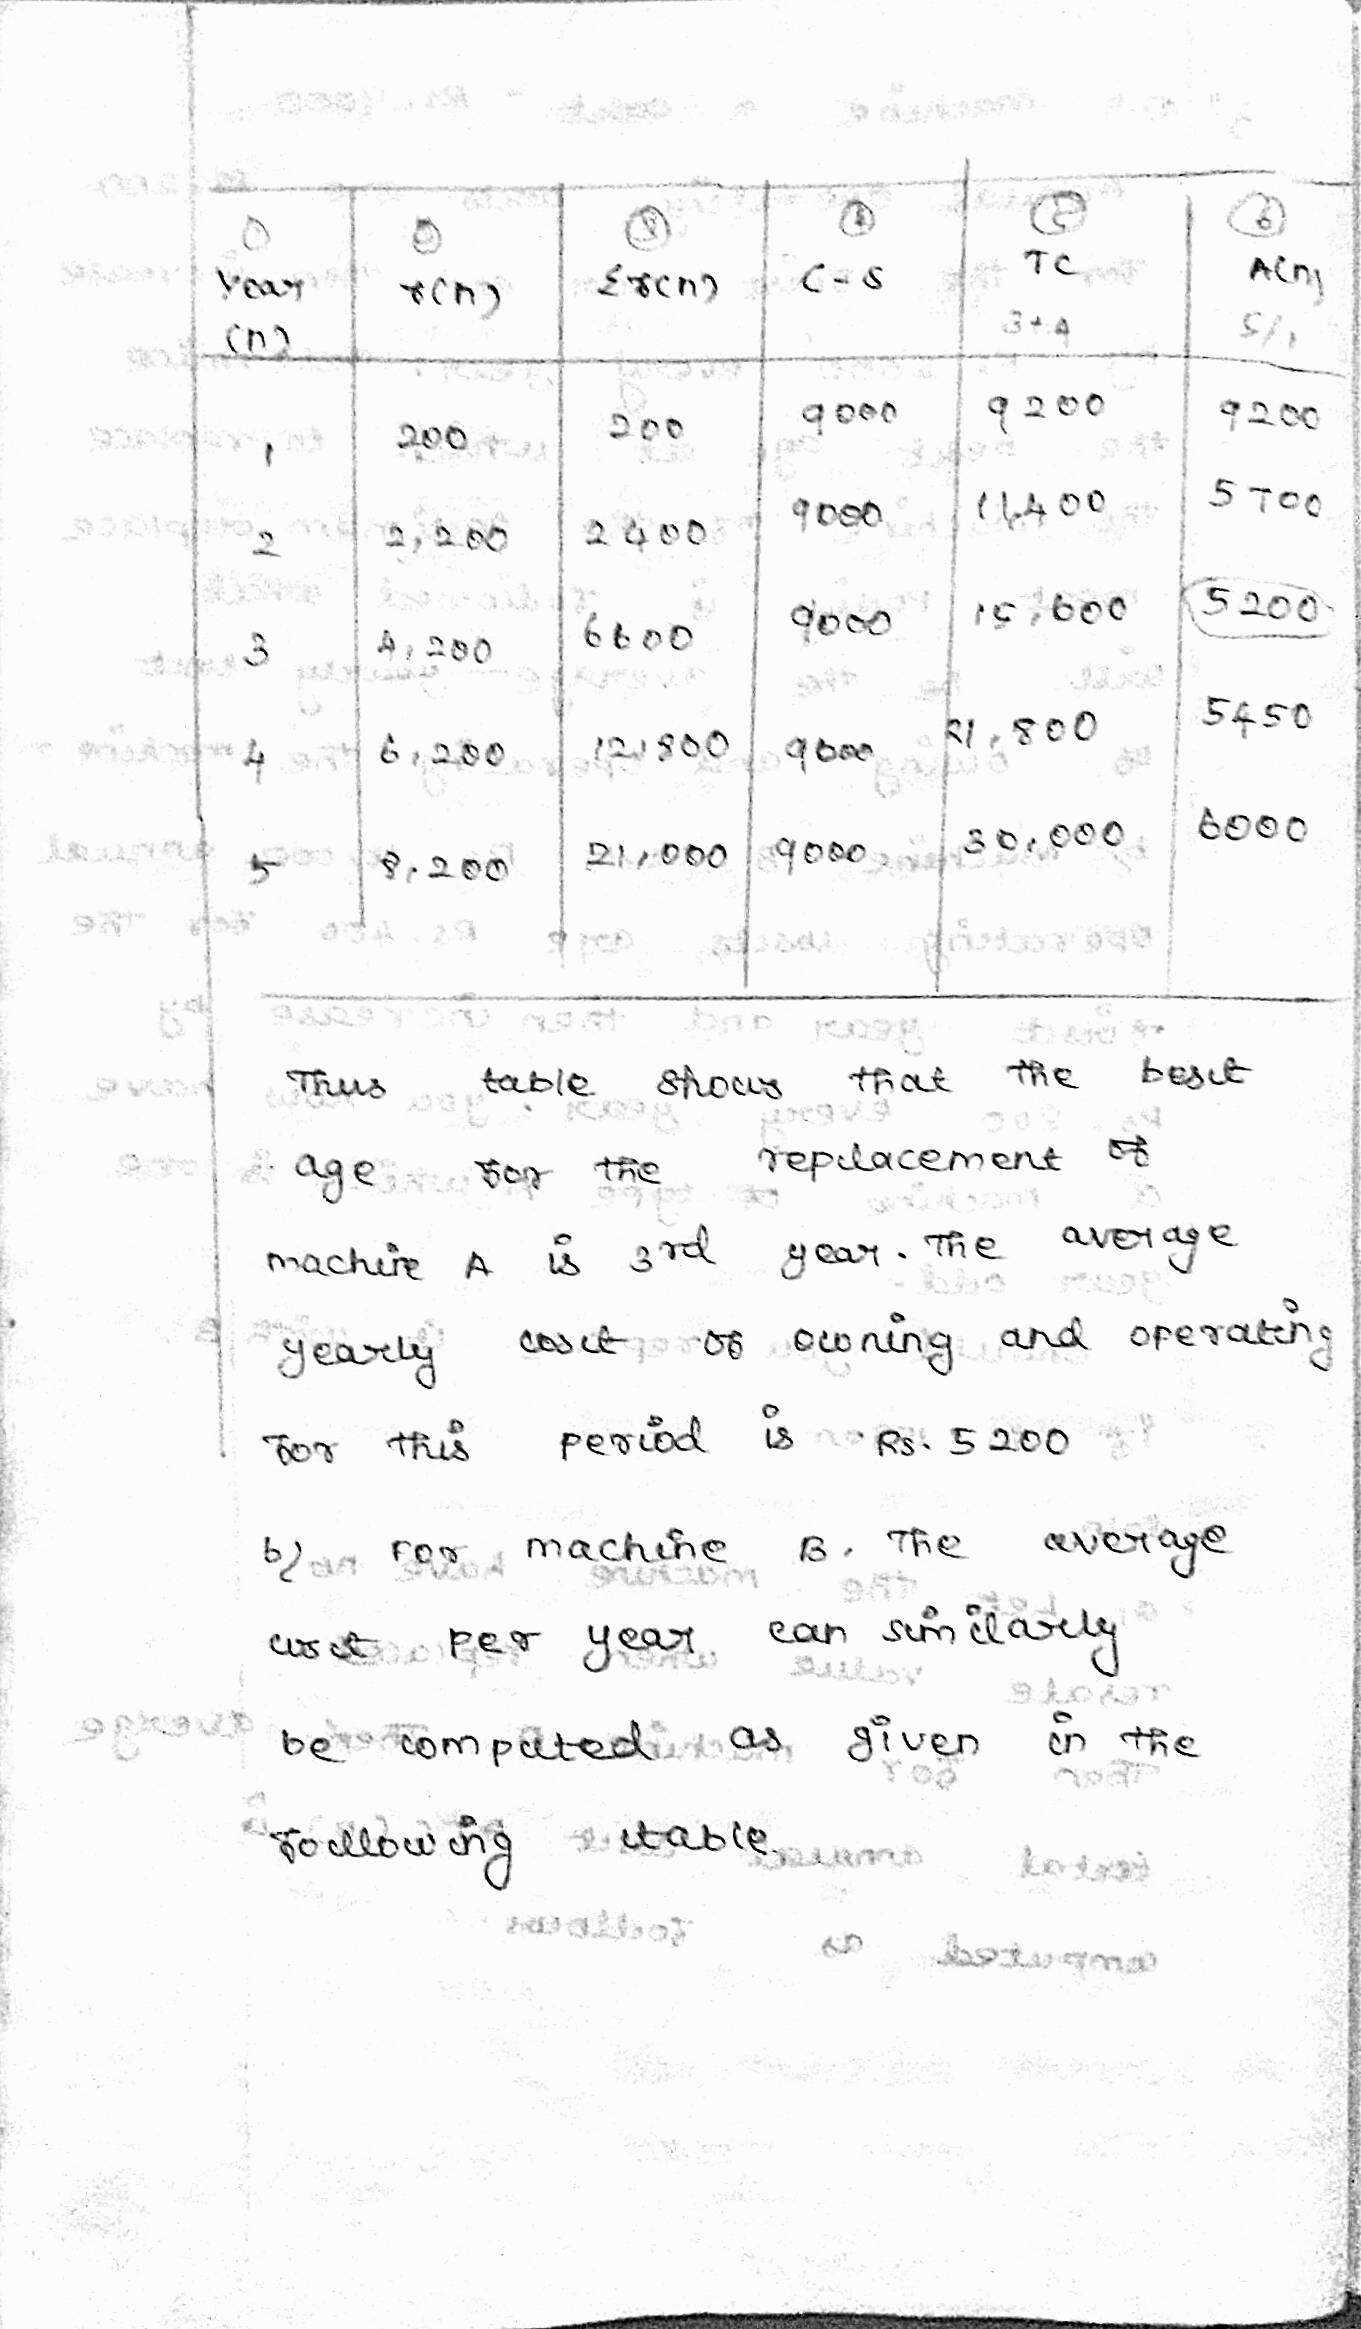 ① ② ③ ④ ⑤ ⑥
Year r(n) Σr(n) C-S TC A(n)
(n) 3+4 5/1
1 200 200 9000 9200 9200
2 2,200 2400 9000 11,400 5700
3 4,200 6600 9000 15,600 5200
4 6,200 12,800 9000 21,800 5450
5 8,200 21,000 9000 30,000 6000
Thus table shows that the best
age for the replacement of
machine A is 3rd year. The average
yearly cost of owning and operating
for this period is Rs. 5200
b) For machine B. The average
cost per year can similarly
be computed as given in the
following table.